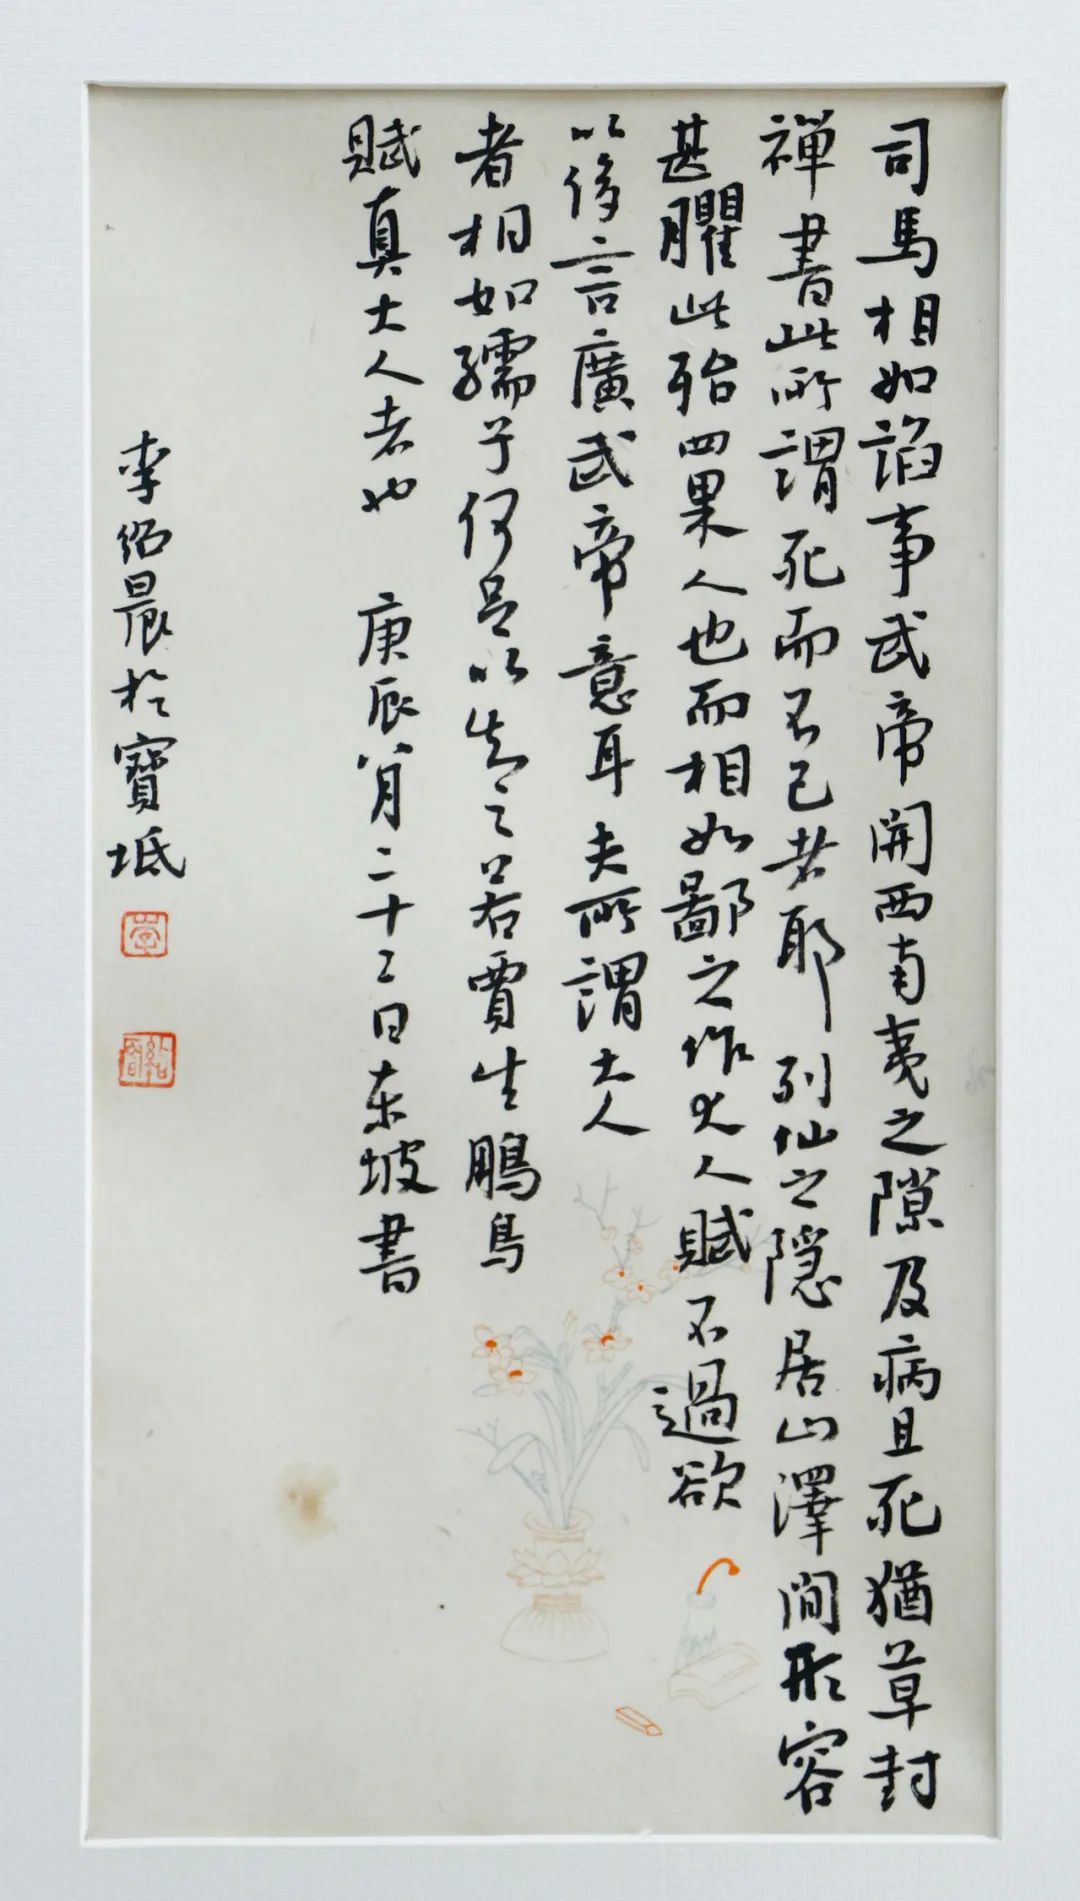 司馬相如諂事武帝開西南夷之隙及病且死猶草封
禅書此所謂死而不已者耶列仙之隱居山澤間形容
甚臞此殆四果人也而相如鄙之作大人賦不過欲
以侈言廣武帝意耳夫所謂大人
者相如孺子何足以知之若賈生鵬鳥
賦真大人者也 庚辰八月二十二日東坡書
李紹晨於寶坻